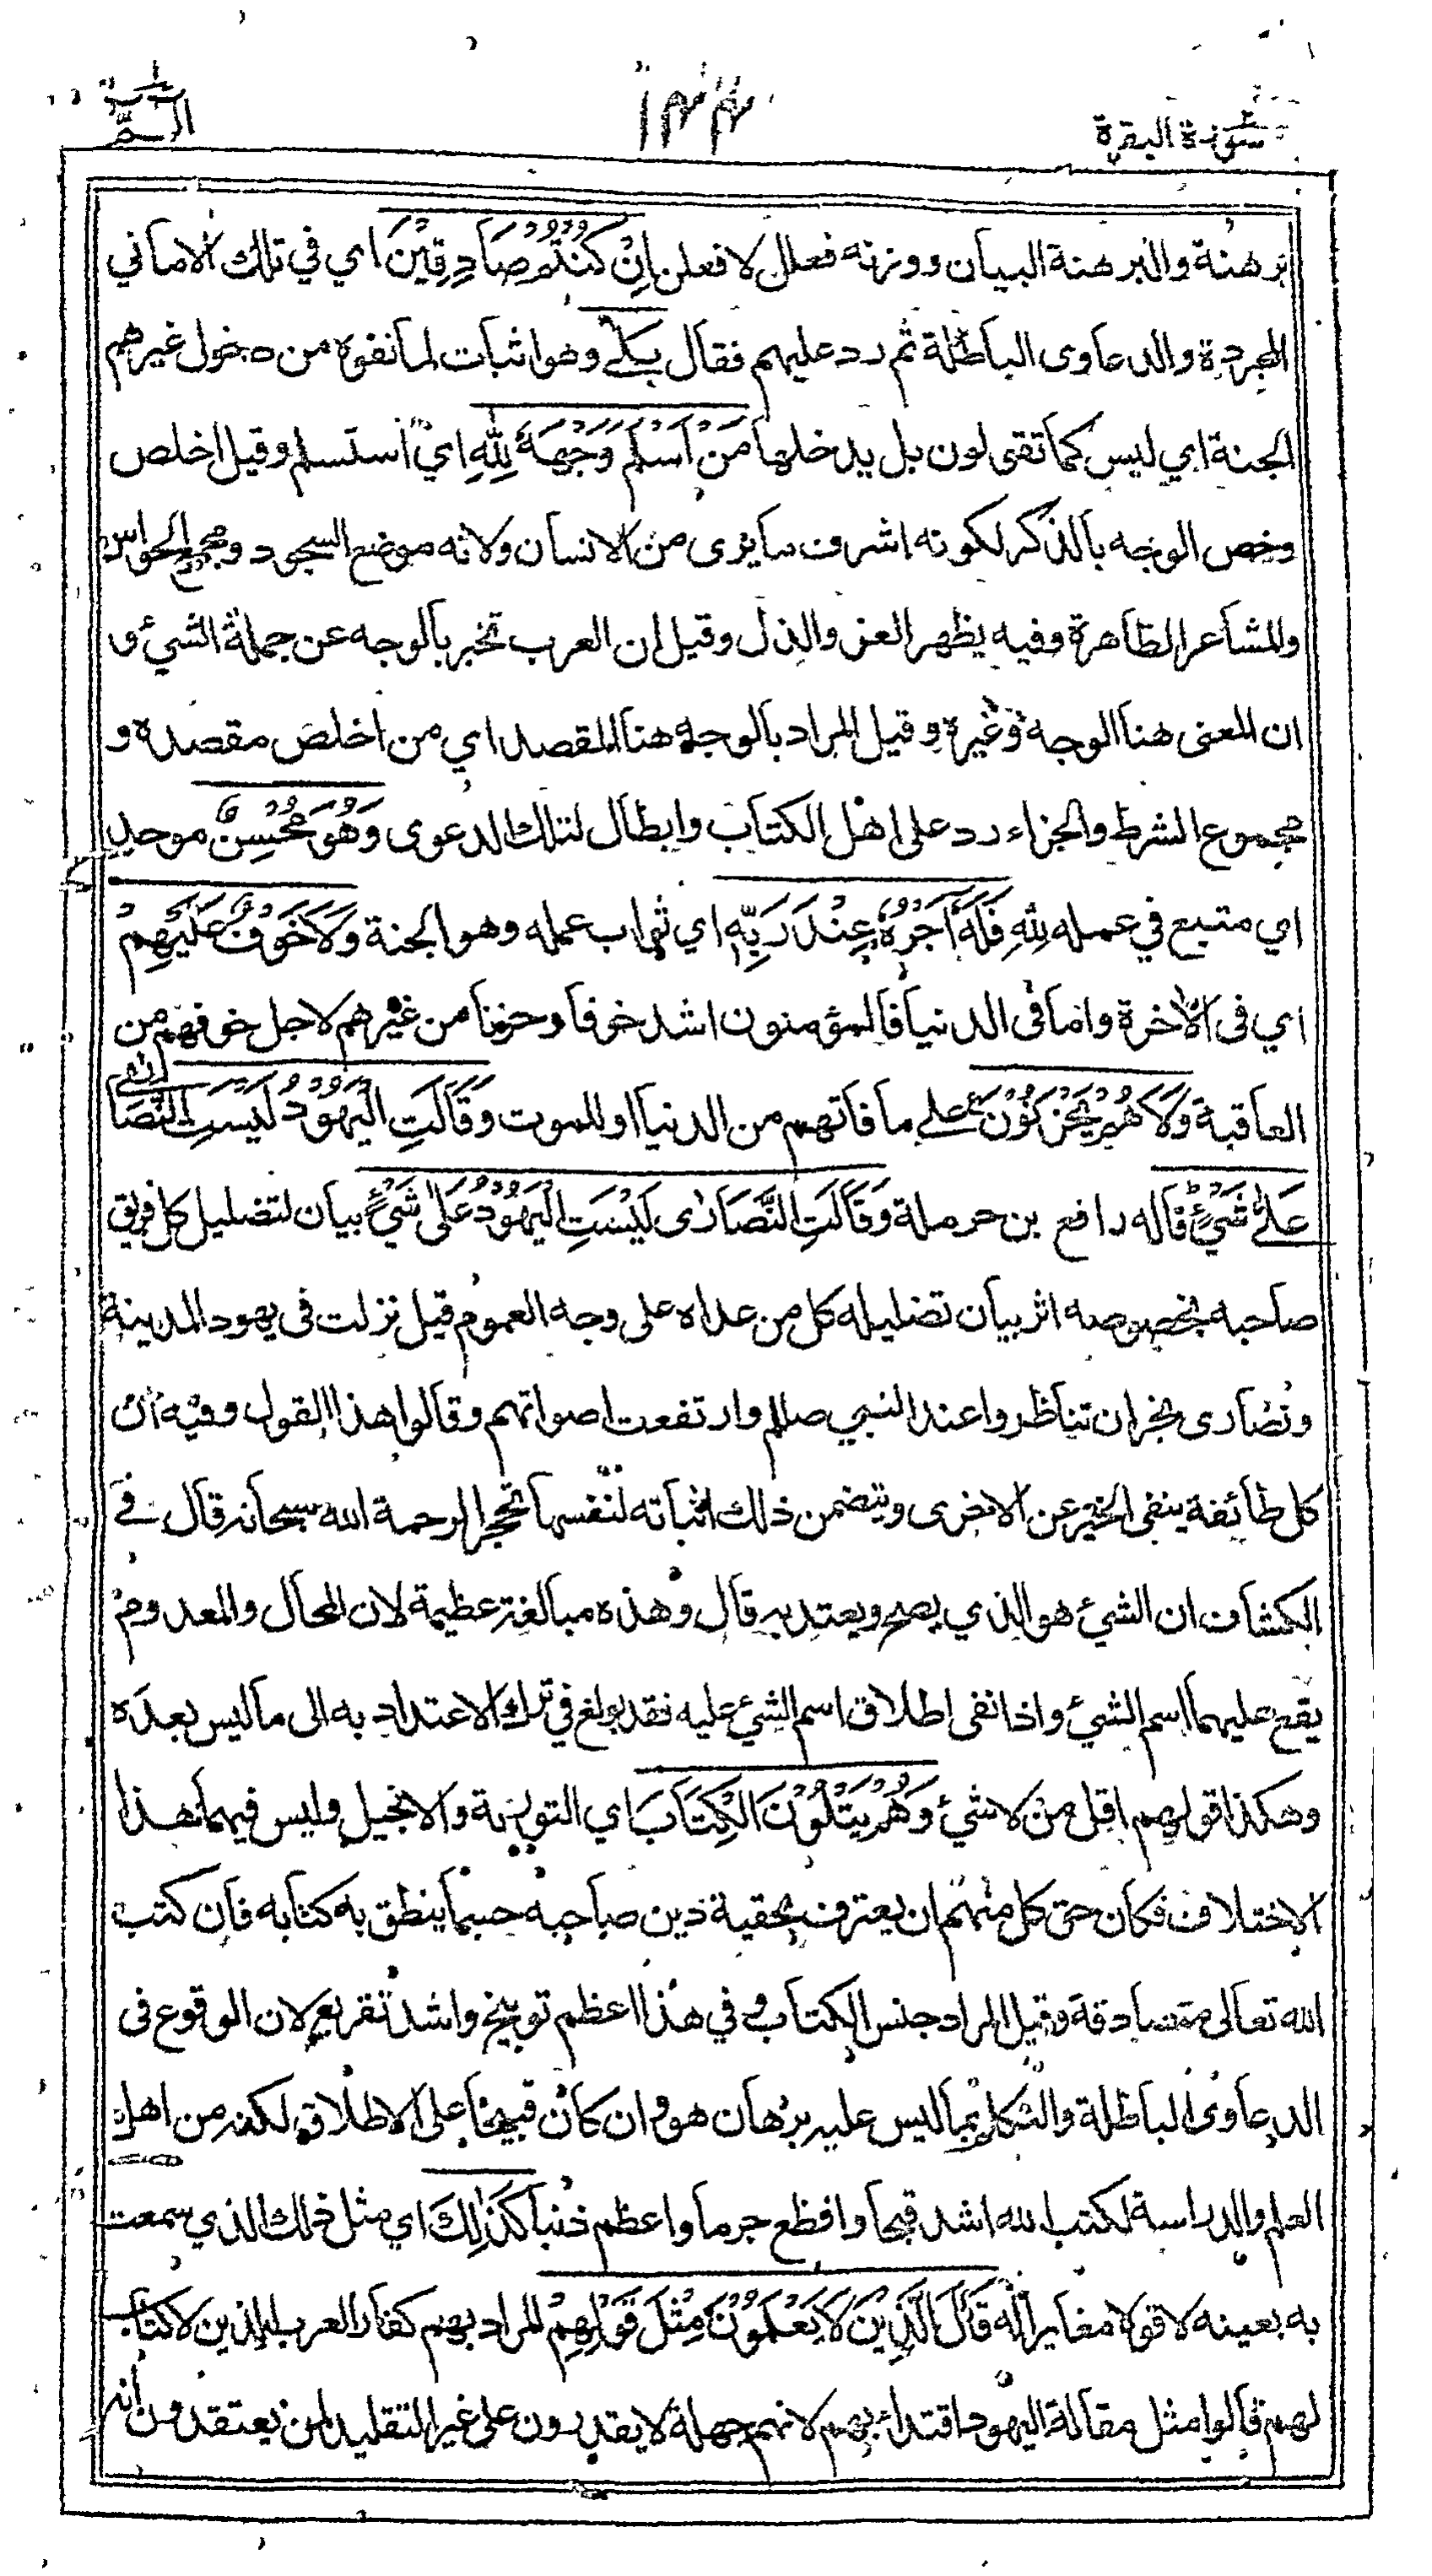 سورة البقرة ١٤٤ الـمّ
برهنة والبرهنة البيان ووزنه فعلال لا فعلن اِنْ كُنْتُمْ صَادِقِيْنَ اي في تلك الاماني
المجردة والدعاوى الباطلة ثم رد عليهم فقال بَلٰى وهو اثبات لما نفوه من دخول غيرهم
الجنة اي ليس كما تقولون بل يدخلها مَنْ اَسْلَمَ وَجْهَهٗ لِلّٰهِ اي استسلم وقيل اخلص
وخص الوجه بالذكر لكونه اشرف ما يرى من الانسان ولانه موضع السجود ومجمع الحواس
والمشاعر الظاهرة وفيه يظهر العز والذل وقيل ان العرب تخبر بالوجه عن جملة الشيء و
ان المعنى هنا الوجه وغيره وقيل المراد بالوجه هنا المقصد اي من اخلص مقصده و
مجموع الشرط والجزاء رد على اهل الكتاب وابطال لتلك الدعوى وَهُوَ مُحْسِنٌ موحد
اي متبع في عمله لله فَلَهٗ اَجْرُهٗ عِنْدَ رَبِّهٖ اي ثواب عمله وهو الجنة وَلَا خَوْفٌ عَلَيْهِمْ
اي في الآخرة واما في الدنيا فالمؤمنون اشد خوفا وحزنا من غيرهم لاجل خوفهم من
العاقبة وَلَا هُمْ يَحْزَنُوْنَ على ما فاتهم من الدنيا او للموت وَقَالَتِ الْيَهُوْدُ لَيْسَتِ النَّصَارٰى
عَلٰى شَيْءٍ قاله رافع بن حرملة وَقَالَتِ النَّصَارٰى لَيْسَتِ الْيَهُوْدُ عَلٰى شَيْءٍ بيان لتضليل كل فريق
صاحبه بخصوصه اثر بيان تضليله كل من عداه على وجه العموم قيل نزلت في يهود المدينة
ونصارى نجران تناظروا عند النبي صللم وارتفعت اصواتهم وقالوا هذا القول وفيه ان
كل طائفة ينفى الخير عن الاخرى ويتضمن ذلك اثباته لنفسها تحجرا لرحمة الله سبحانه قال في
الكشاف ان الشيء هو الذي يصح ويعتد به قال وهذه مبالغة عظيمة لان المحال والمعدوم
يقع عليهما اسم الشيء واذا نفى اطلاق اسم الشيء عليه فقد بولغ في ترك الاعتداد به الى ما ليس بعده
وهكذا قولهم اقل من لا شيء وَهُمْ يَتْلُوْنَ الْكِتَابَ اي التورىة والانجيل وليس فيهما هذا
الاختلاف فكان حق كل منهم ان يعترف بحقية دين صاحبه حسبما ينطق به كتابه فان كتب
الله تعالى متصادقة وقيل المراد جنس الكتاب وفي هذا اعظم توبيخ واشد تقريع لان الوقوع في
الدعاوى الباطلة والتكلم بما ليس عليه برهان هو وان كان قبيحا على الاطلاق لكنه من اهل
العلم والدراسة لكتب الله اشد قبحا وافظع جرما واعظم ذنبا كَذٰلِكَ اي مثل ذلك الذي سمعت
به بعينه لا قولا مغايرا له قَالَ الَّذِيْنَ لَا يَعْلَمُوْنَ مِثْلَ قَوْلِهِمْ المراد بهم كفار العرب الذين لا كتاب
لهم قالوا مثل مقالة اليهود اقتداء بهم لانهم جهلة لا يقدرون على غير التقليد لمن يعتقدون انه